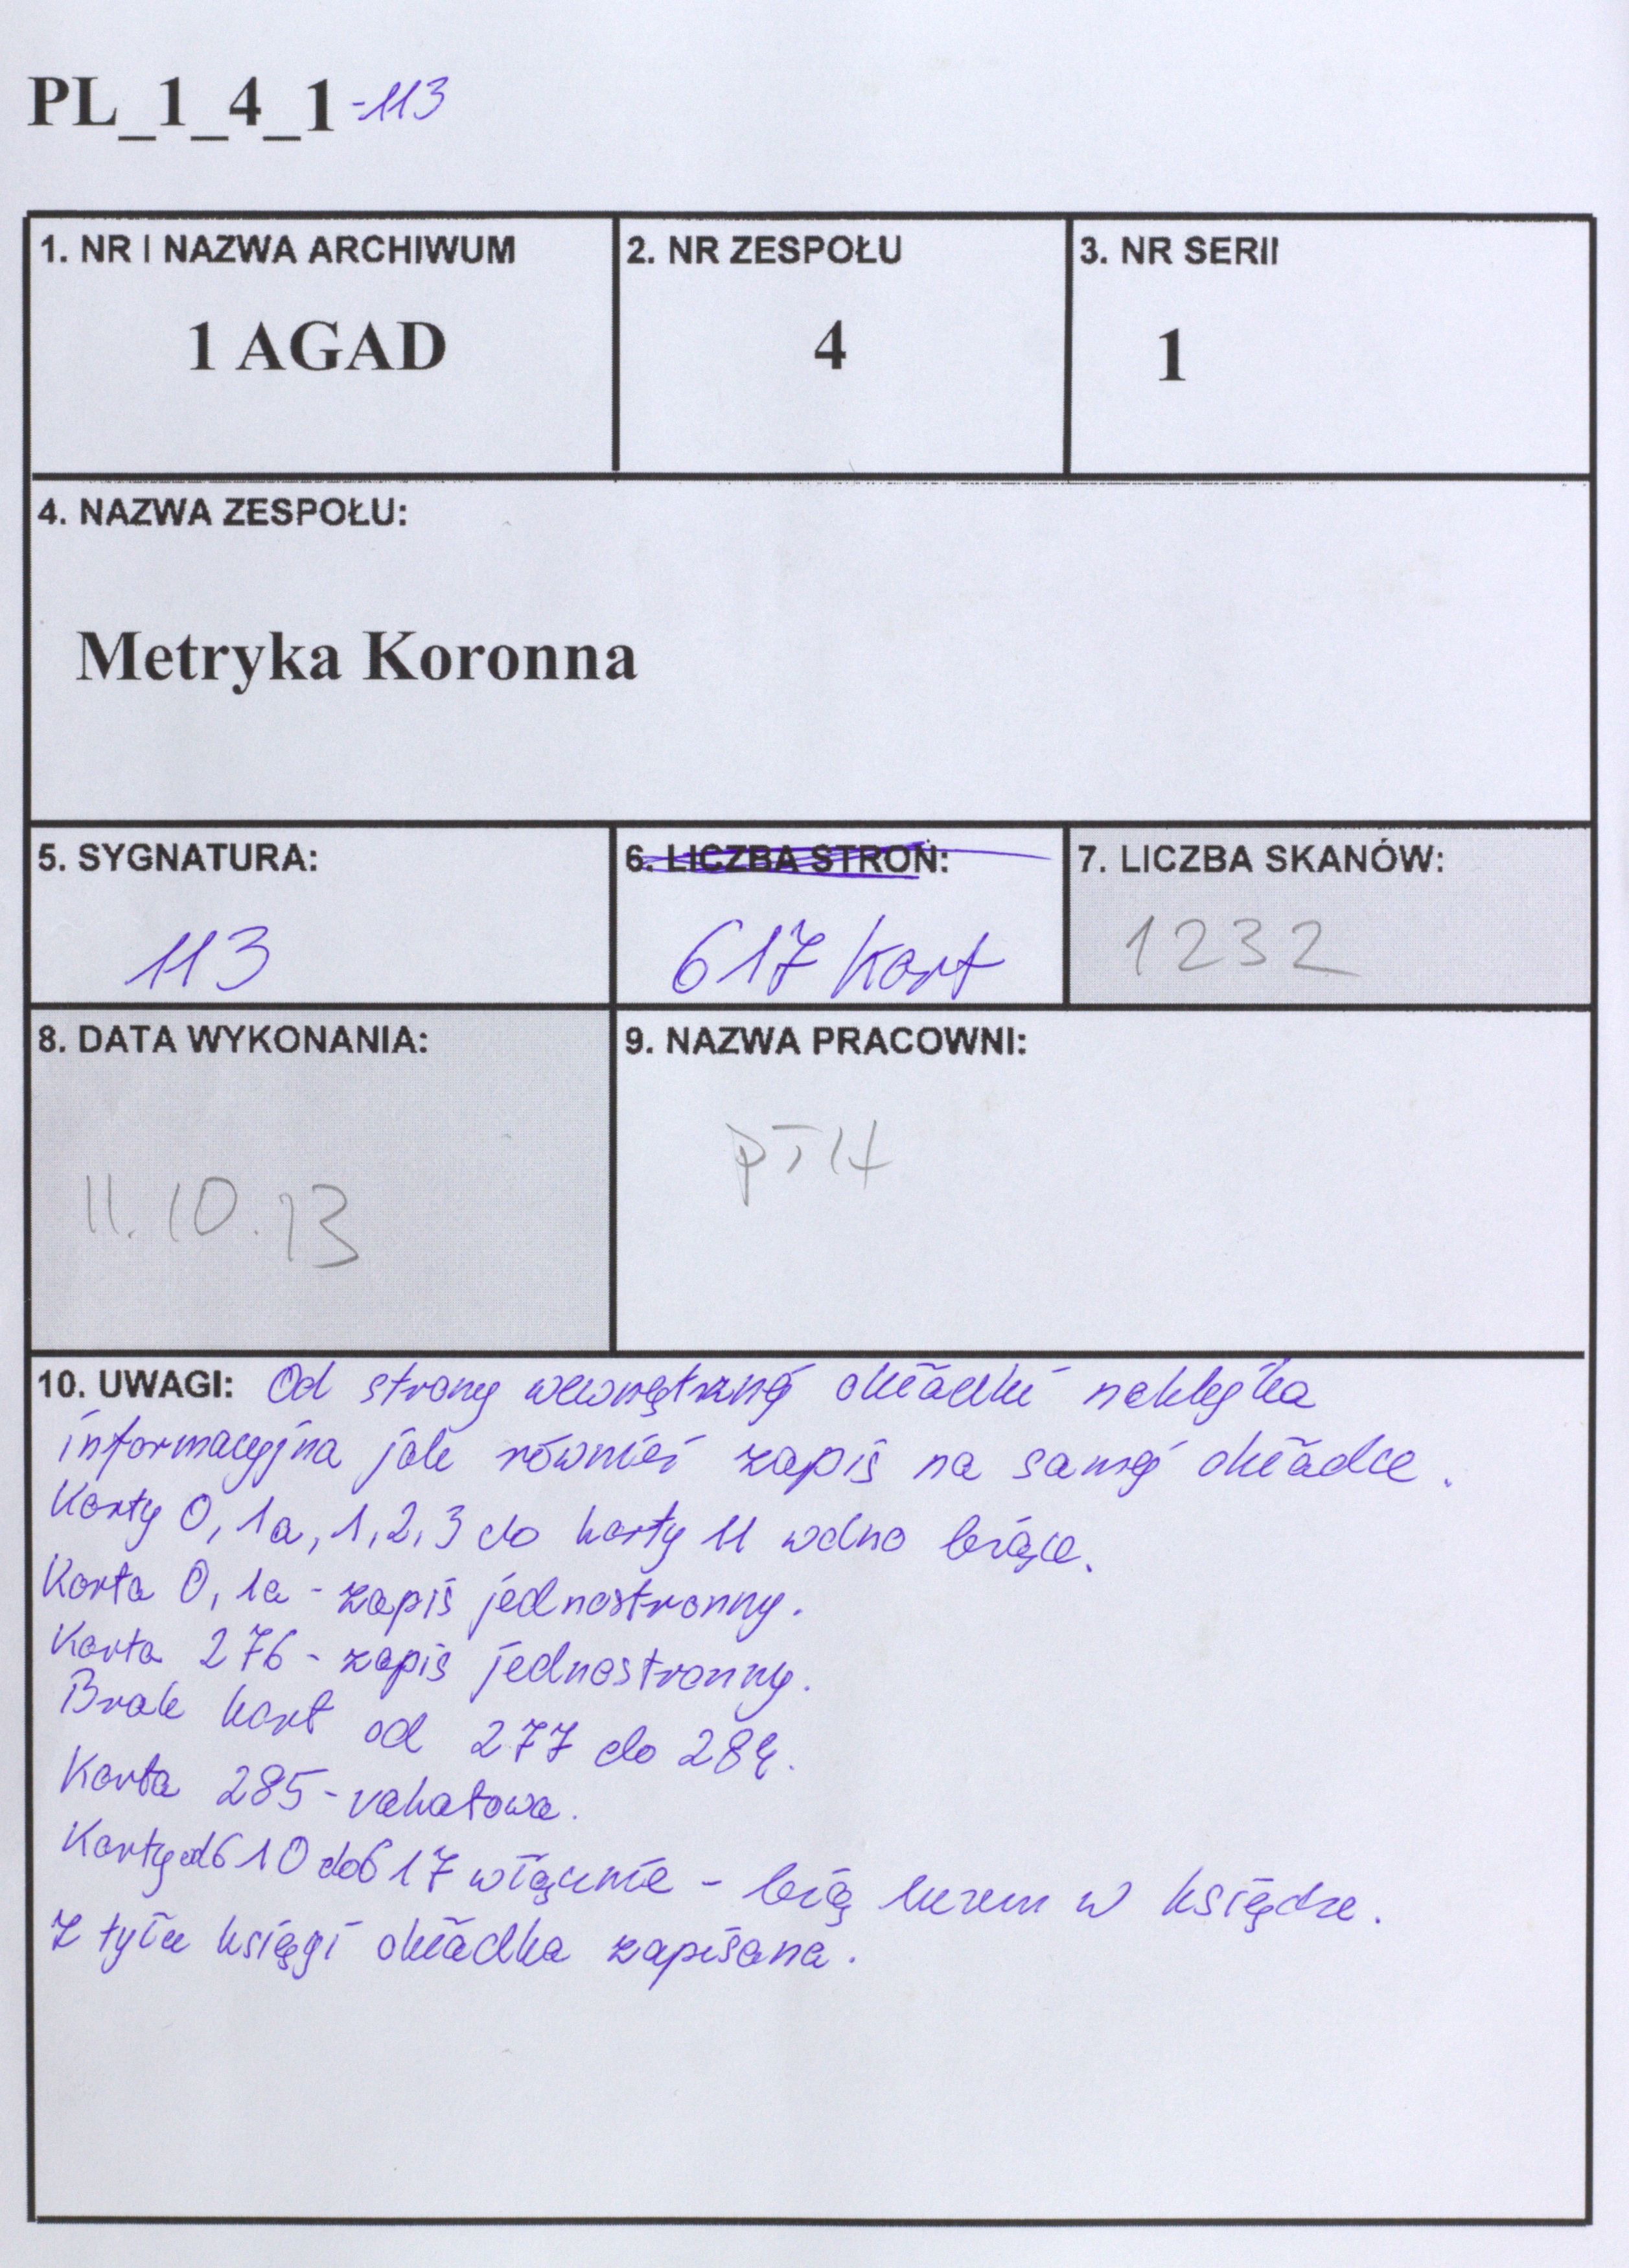 PL_1_4_1-113
1. NR I NAZWA ARCHIWUM
1 AGAD
2. NR ZESPOŁU
4
3. NR SERII
1
4. NAZWA ZESPOŁU:
Metryka Koronna
5. SYGNATURA:
113
6. LICZBA STRON:
617 kart
7. LICZBA SKANÓW:
1232
8. DATA WYKONANIA:
11.10.13
9. NAZWA PRACOWNI:
10. UWAGI: Od strony wewnętrznej okładki naklejka
informacyjna jak również zapis na samej okładce.
Karty 0, 1a, 1, 2, 3 do karty 11 wolno leżące.
Karta 0, 1a - zapis jednostronny.
Karta 276 - zapis jednostronny.
Brak kart od 277 do 284.
Karta 285 - vakatowa.
Karty od 610 do 617 włącznie - leżą luzem w księdze.
Z tyłu księgi okładka zapisana.